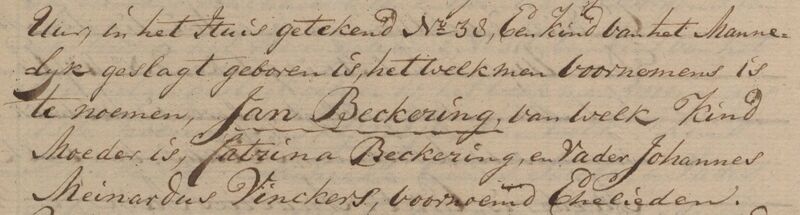 Uur, in het Huis getekend No. 38, Een Kind van het Manne-
lyk geslagt geboren is, het welk men voornemens is
te noemen, Jan Beckering, van welk Kind
Moeder is, Catrina Beckering, en Vader Johannes
Meinardus Vinckers, voornoemd Ehelieden.